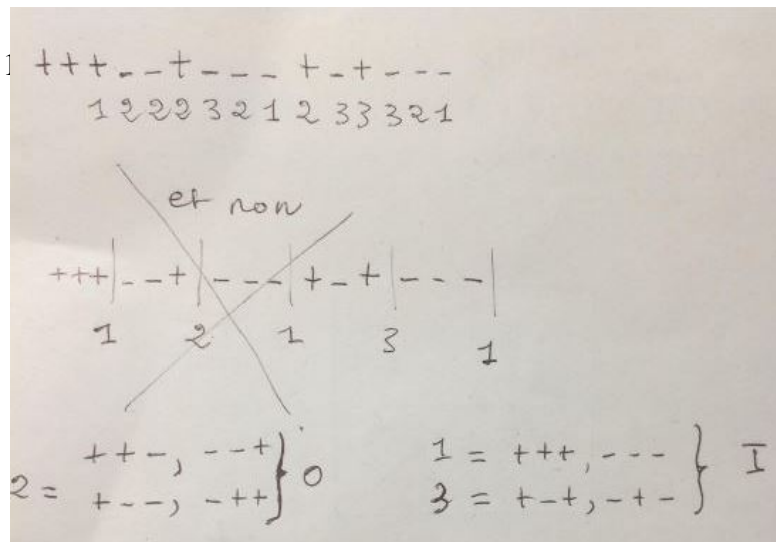 +++--+---+-+---
1222321233321
et non
+++|--+|---|+-+|---|
1 2 1 3 1
++-, --+ } O 1 = +++, --- } I
2 = +--, -++ 3 = +-+, -+-